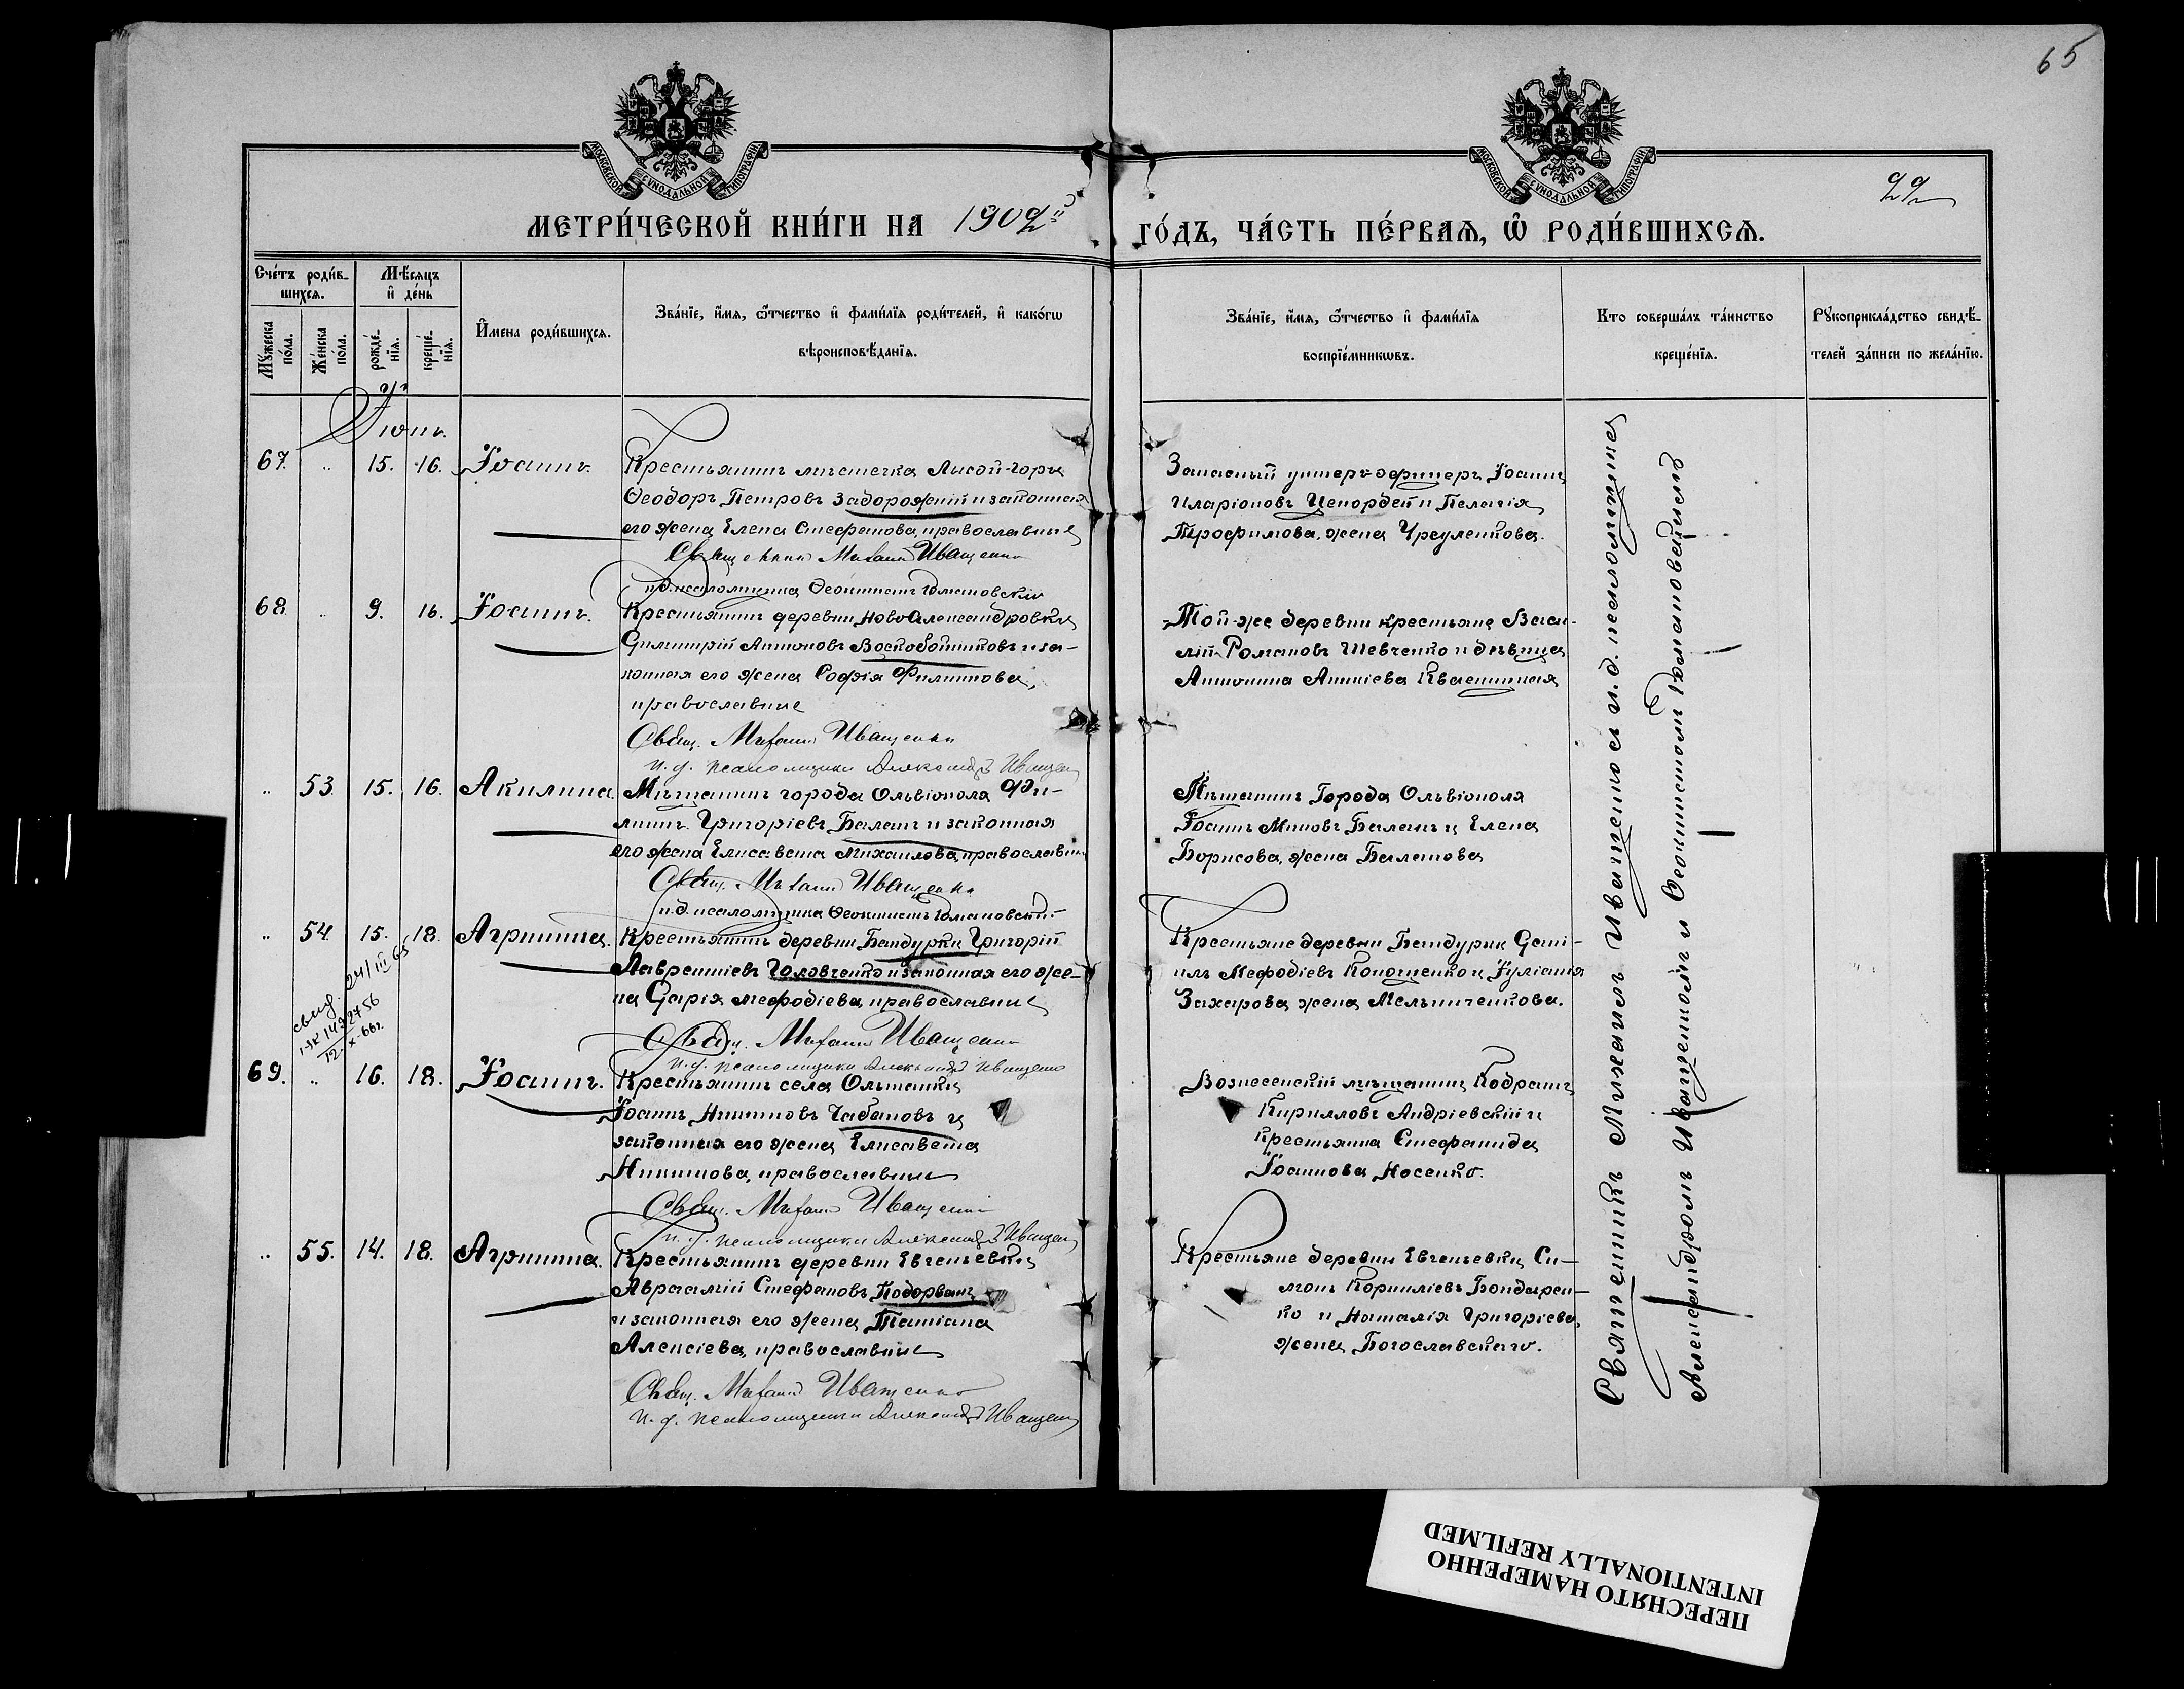 65
МОСКОВСКОЙ СѴНОДАЛЬНОЙ ТИПОГРАФІИ
МОСКОВСКОЙ СѴНОДАЛЬНОЙ ТИПОГРАФІИ
22
МЕТРИ́ЧЕСКОЙ КНИ́ГИ НА 1902й ГО́ДЪ, ЧА́СТЬ ПЕ́РВАѦ, Ѡ РОДИ́ВШИХСѦ.
Сче́тъ роди́в-
шихсѧ.
Мѣ́сѧцъ
и де́нь
Мꙋ́жеска по́ла.
Же́нска по́ла.
рожде́-
нїѧ.
креще́-
нїѧ.
Имена роди́вшихсѧ.
Зва́нїе, и́мѧ, ѻ́тчество и фами́лїѧ роди́телей, и како́гѡ
вѣроисповѣ́данїѧ.
Зва́нїе, и́мѧ, ѻ́тчество и фами́лїѧ
воспрїе́мникѡвъ.
Кто соверша́лъ та́инство
креще́нїѧ.
Рꙋкоприкла́дство свидѣ́-
телей за́писи по жела́нїю.
Іюнь.
67. „ 15. 16. Іоаннъ.
Крестьянинъ мѣстечка Лысой-горы
Ѳеодоръ Петровъ Задорожній и законная
его жена Елена Стефанова, православные
Священникъ Михаилъ Иващенко
и.д. псаломщика Ѳеоктистъ Романовскій
Запасный унтеръ-офицеръ Іоаннъ
Иларіоновъ и Пелагія
Трофимова, жена
68. „ 9. 16. Іоаннъ.
Крестьянинъ деревни НовоАлександровки
Димитрій Антоновъ Воскобойниковъ и за-
конная его жена Софія Филиппова,
православные
Свящ. Михаилъ Иващенко
и.д. псаломщика Александръ Иващенко
Той-же деревни крестьяне Васи-
лій Романовъ Шевченко и дѣвица
Антонина
„ 53. 15. 16. Акилина.
Мѣщанинъ города Ольвіополя Фи-
липпъ Григоріевъ Баланъ и законная
его жена Елисавета Михаилова, православные
Свящ. Михаилъ Иващенко
и.д. псаломщика Ѳеоктистъ Романовскій
Мѣщанинъ Города Ольвіополя
Іоаннъ Миновъ Баланъ и Елена
Борисова, жена Баланова
„ 54. 15. 18. Агриппина.
Крестьянинъ деревни Бандурки Григорій
Лаврентіевъ Головченко и законная его же-
на Дарія Мефодіева, православные
Свящ. Михаилъ Иващенко
и.д. псаломщика Александръ Иващенко
Крестьяне деревни Бандурки Дані-
илъ Мефодіевъ Кононенко и Іуліанія
Захарова жена Мельниченкова.
свид. 24/III 65
12.X-66г.
69. „ 16. 18. Іоаннъ.
Крестьянинъ села Ольшанки
Іоаннъ Никитовъ Чабановъ и
законная его жена Елисавета
Никитова, православные
Свящ. Михаилъ Иващенко
и.д. псаломщика Александръ Иващенко
Вознесенскій мѣщанинъ Кодратъ
Кирилловъ Андріевскій и
Крестьянка Стефанида
Іоаннова Носенко.
„ 55. 14. 18. Агриппина.
Крестьянинъ деревни Евгеньевки
Авраамій Стефановъ Подорванъ
и законная его жена Татіана
Алексіева, православные
Свящ. Михаилъ Иващенко
и.д. псаломщика Александръ Иващенко
Крестьяне деревни Евгеньевки Си-
монъ Корниліевъ Бондарен-
ко и Наталія Григоріева,
жена Богославскаго.
Священникъ Михаилъ Иващенко съ и.д. псаломщика
Александромъ Иващенкомъ и Ѳеоктистомъ Романовскимъ
ПЕРЕСНЯТО НАМЕРЕННО
INTENTIONALLY REFILMED